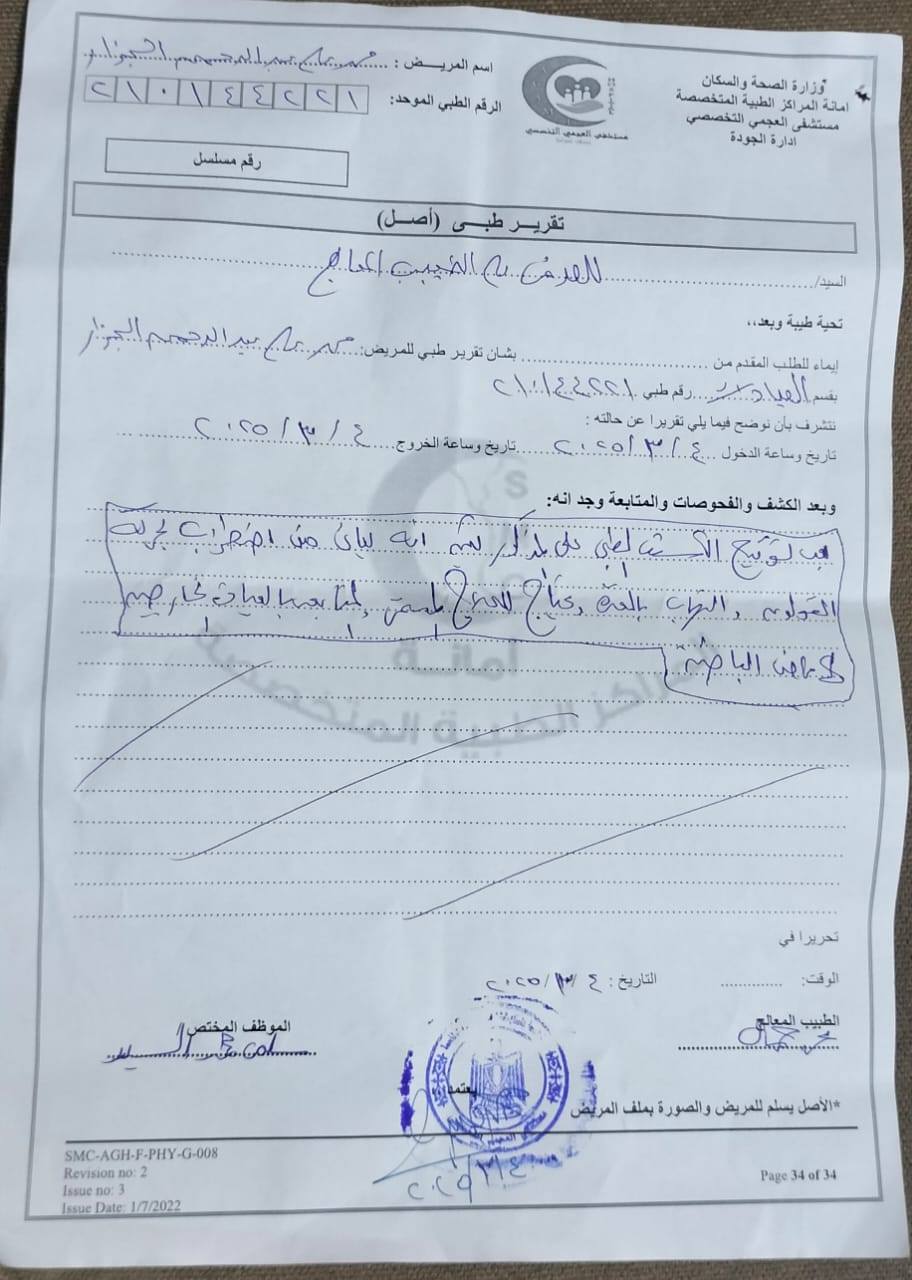 وزارة الصحة والسكان
امانة المراكز الطبية المتخصصة
مستشفى العجمي التخصصي
ادارة الجودة
مستشفى العجمي التخصصي
اسم المريض : محمد عبد الرحمن الجزار
الرقم الطبي الموحد: ٢١٠١٤٤٢٢١
رقم مسلسل
تقرير طبى (أصل)
السيد/ للعرض على الطبيب المعالج
تحية طيبة وبعد،،
إيماء للطلب المقدم من بشان تقرير طبي للمريض: محمد عبد الرحمن الجزار
بقسم العيادات رقم طبي ٢١٠١٤٤٢٢١
نتشرف بأن نوضح فيما يلي تقريرا عن حالته :
تاريخ وساعة الدخول ٤ / ٣ / ٢٠٢٥ تاريخ وساعة الخروج ٤ / ٣ / ٢٠٢٥
وبعد الكشف والفحوصات والمتابعة وجد انه:
بتوقيع الكشف الطبي على المذكور تبين انه يعانى من اضطراب بحركة
القولون والتهاب بالمعدة ويحتاج للعلاج والمتابعة بالعيادة الخارجية
لامراض الباطنة
أمانة
المراكز الطبية المتخصصة
تحريرا في
الوقت: التاريخ : ٤ / ٣ / ٢٠٢٥
الطبيب المعالج
الموظف المختص
يعتمد
*الأصل يسلم للمريض والصورة بملف المريض
٢٠٢٥/٣/٤
SMC-AGH-F-PHY-G-008
Revision no: 2
Issue no: 3
Issue Date: 1/7/2022
Page 34 of 34